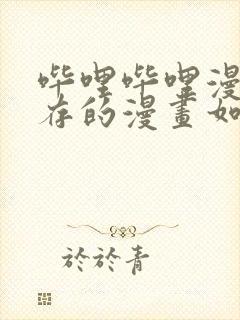 哔哩哔哩漫
存的漫畫如
於於青